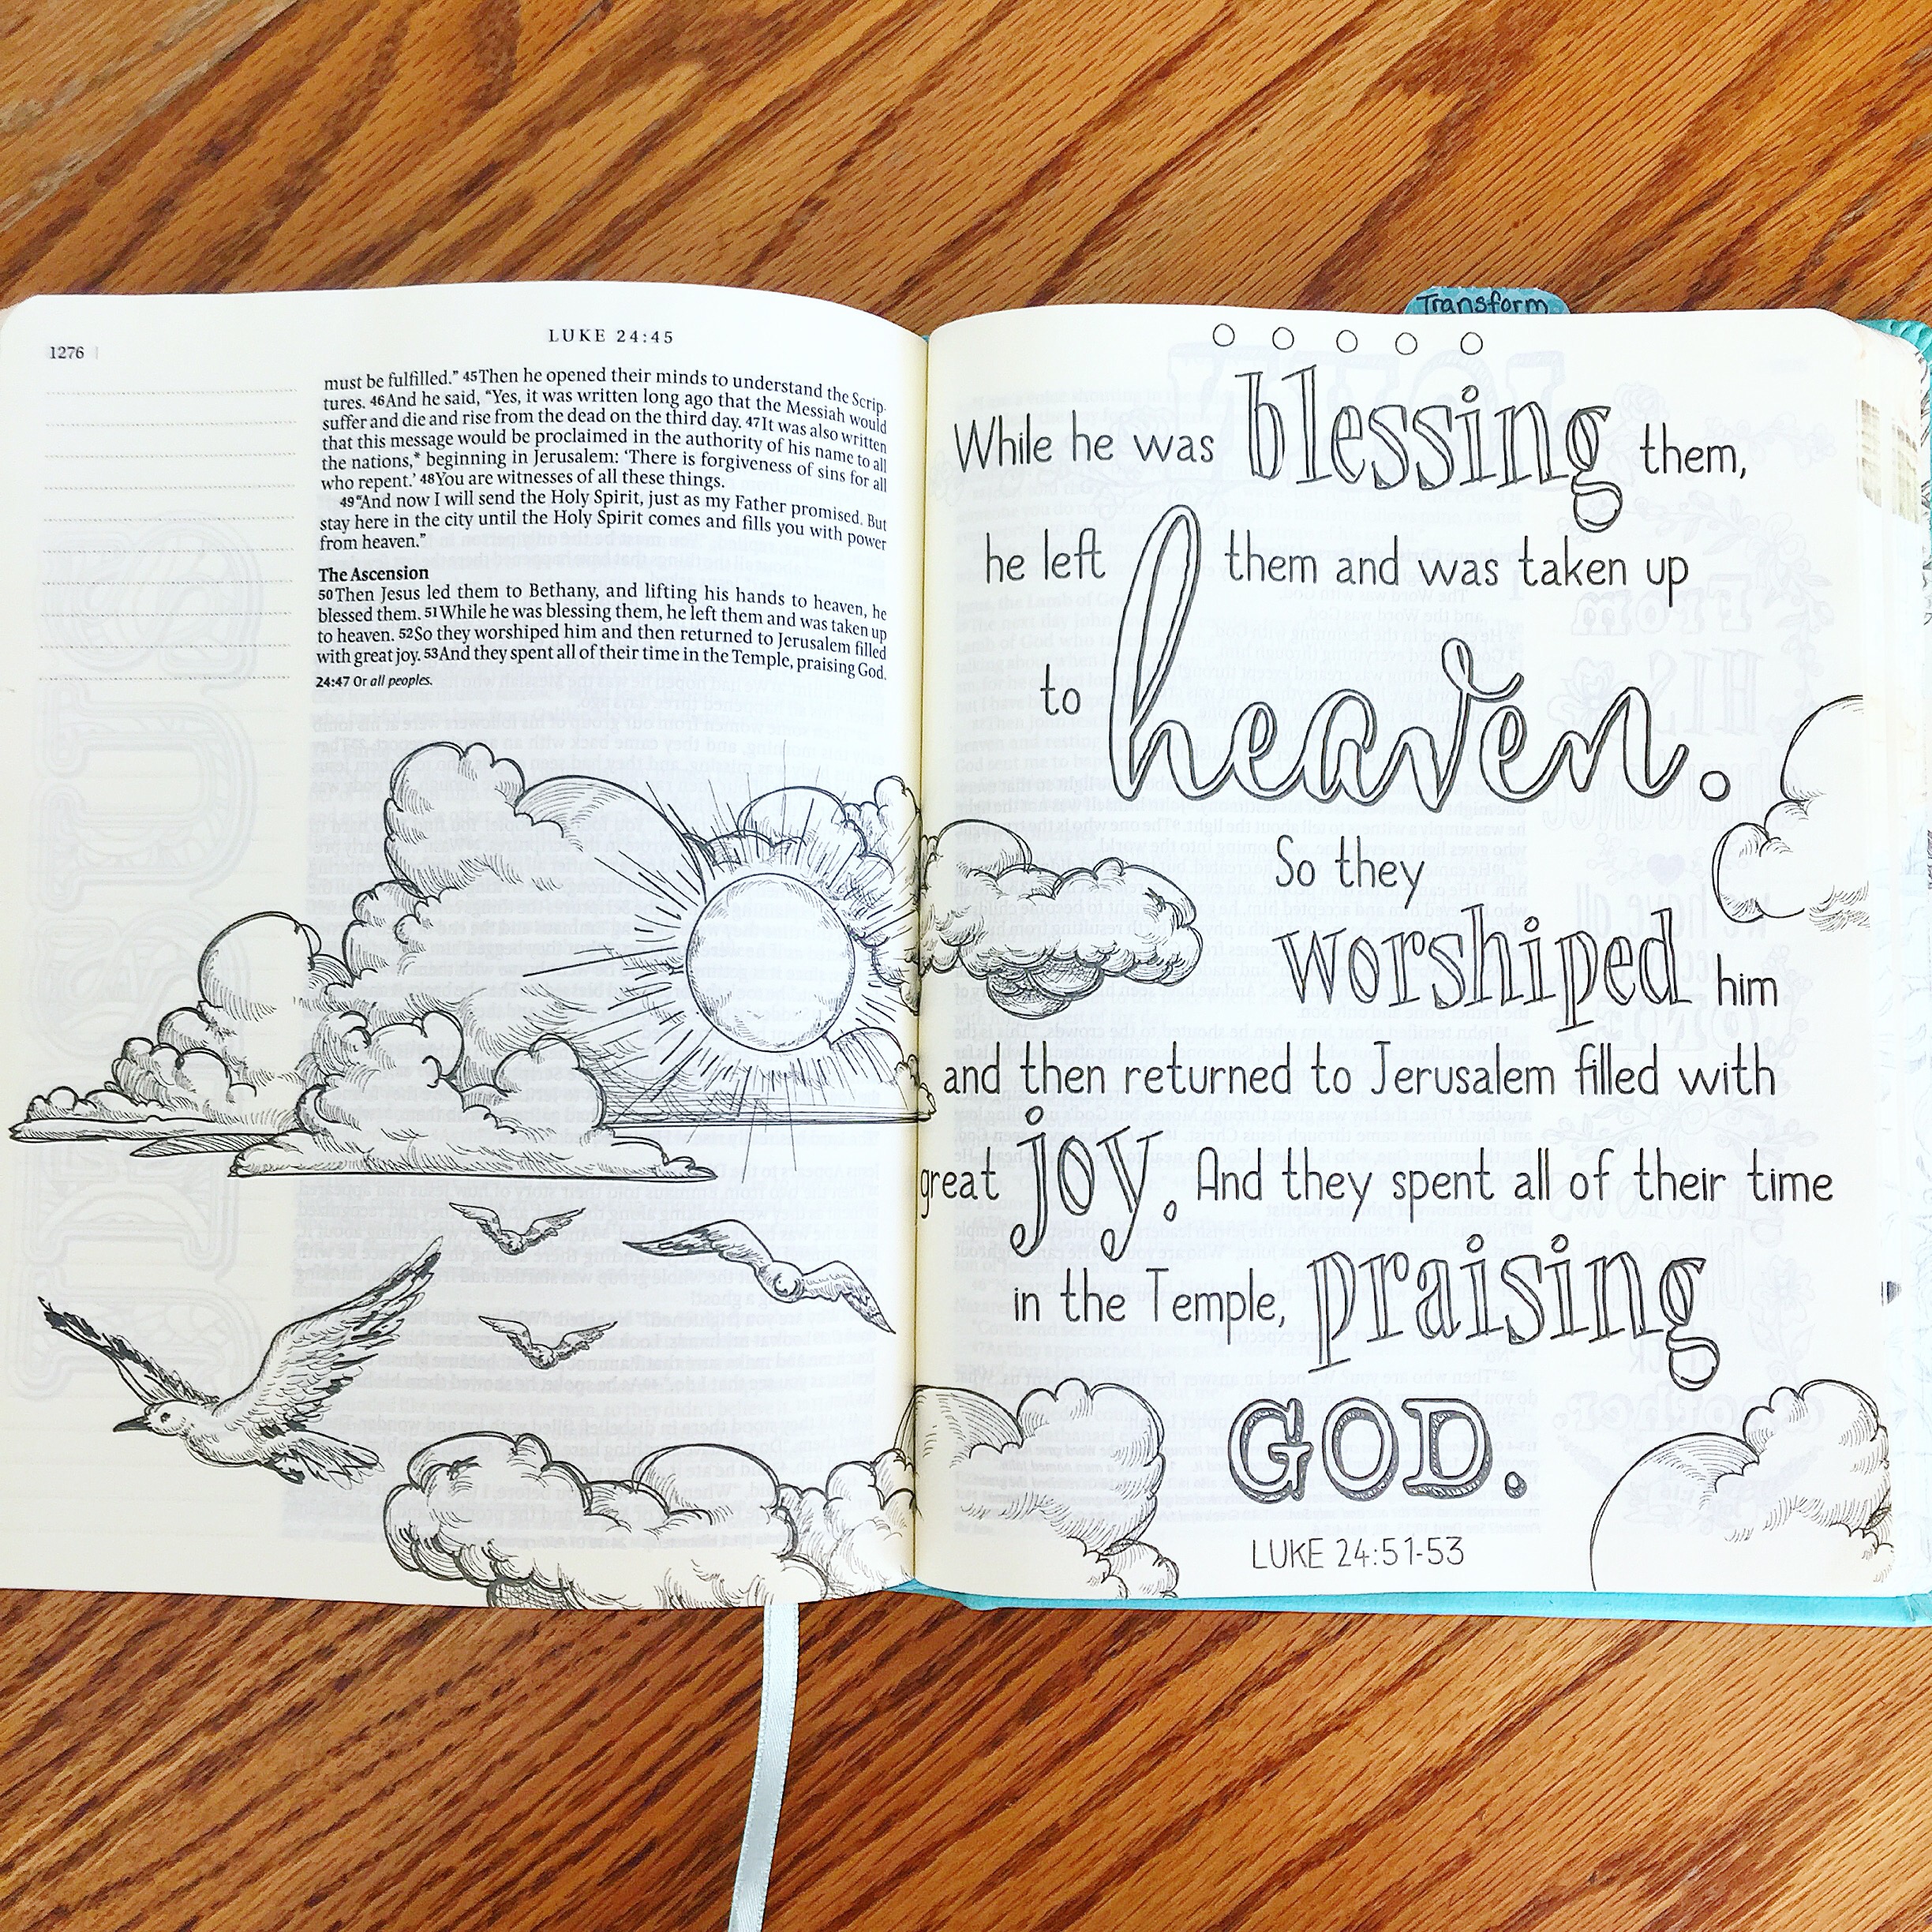 1276
LUKE 24:45
must be fulfilled.” 45Then he opened their minds to understand the Scrip-
tures. 46And he said, “Yes, it was written long ago that the Messiah would
suffer and die and rise from the dead on the third day. 47It was also written
that this message would be proclaimed in the authority of his name to all
the nations,* beginning in Jerusalem: ‘There is forgiveness of sins for all
who repent.’ 48You are witnesses of all these things.
49“And now I will send the Holy Spirit, just as my Father promised. But
stay here in the city until the Holy Spirit comes and fills you with power
from heaven.”
The Ascension
50Then Jesus led them to Bethany, and lifting his hands to heaven, he
blessed them. 51While he was blessing them, he left them and was taken up
to heaven. 52So they worshiped him and then returned to Jerusalem filled
with great joy. 53And they spent all of their time in the Temple, praising God.
24:47 Or all peoples.
Transform
While he was blessing them,
he left them and was taken up
to heaven.
So they
worshiped him
and then returned to Jerusalem filled with
great joy. And they spent all of their time
in the Temple, praising
GOD.
LUKE 24:51-53